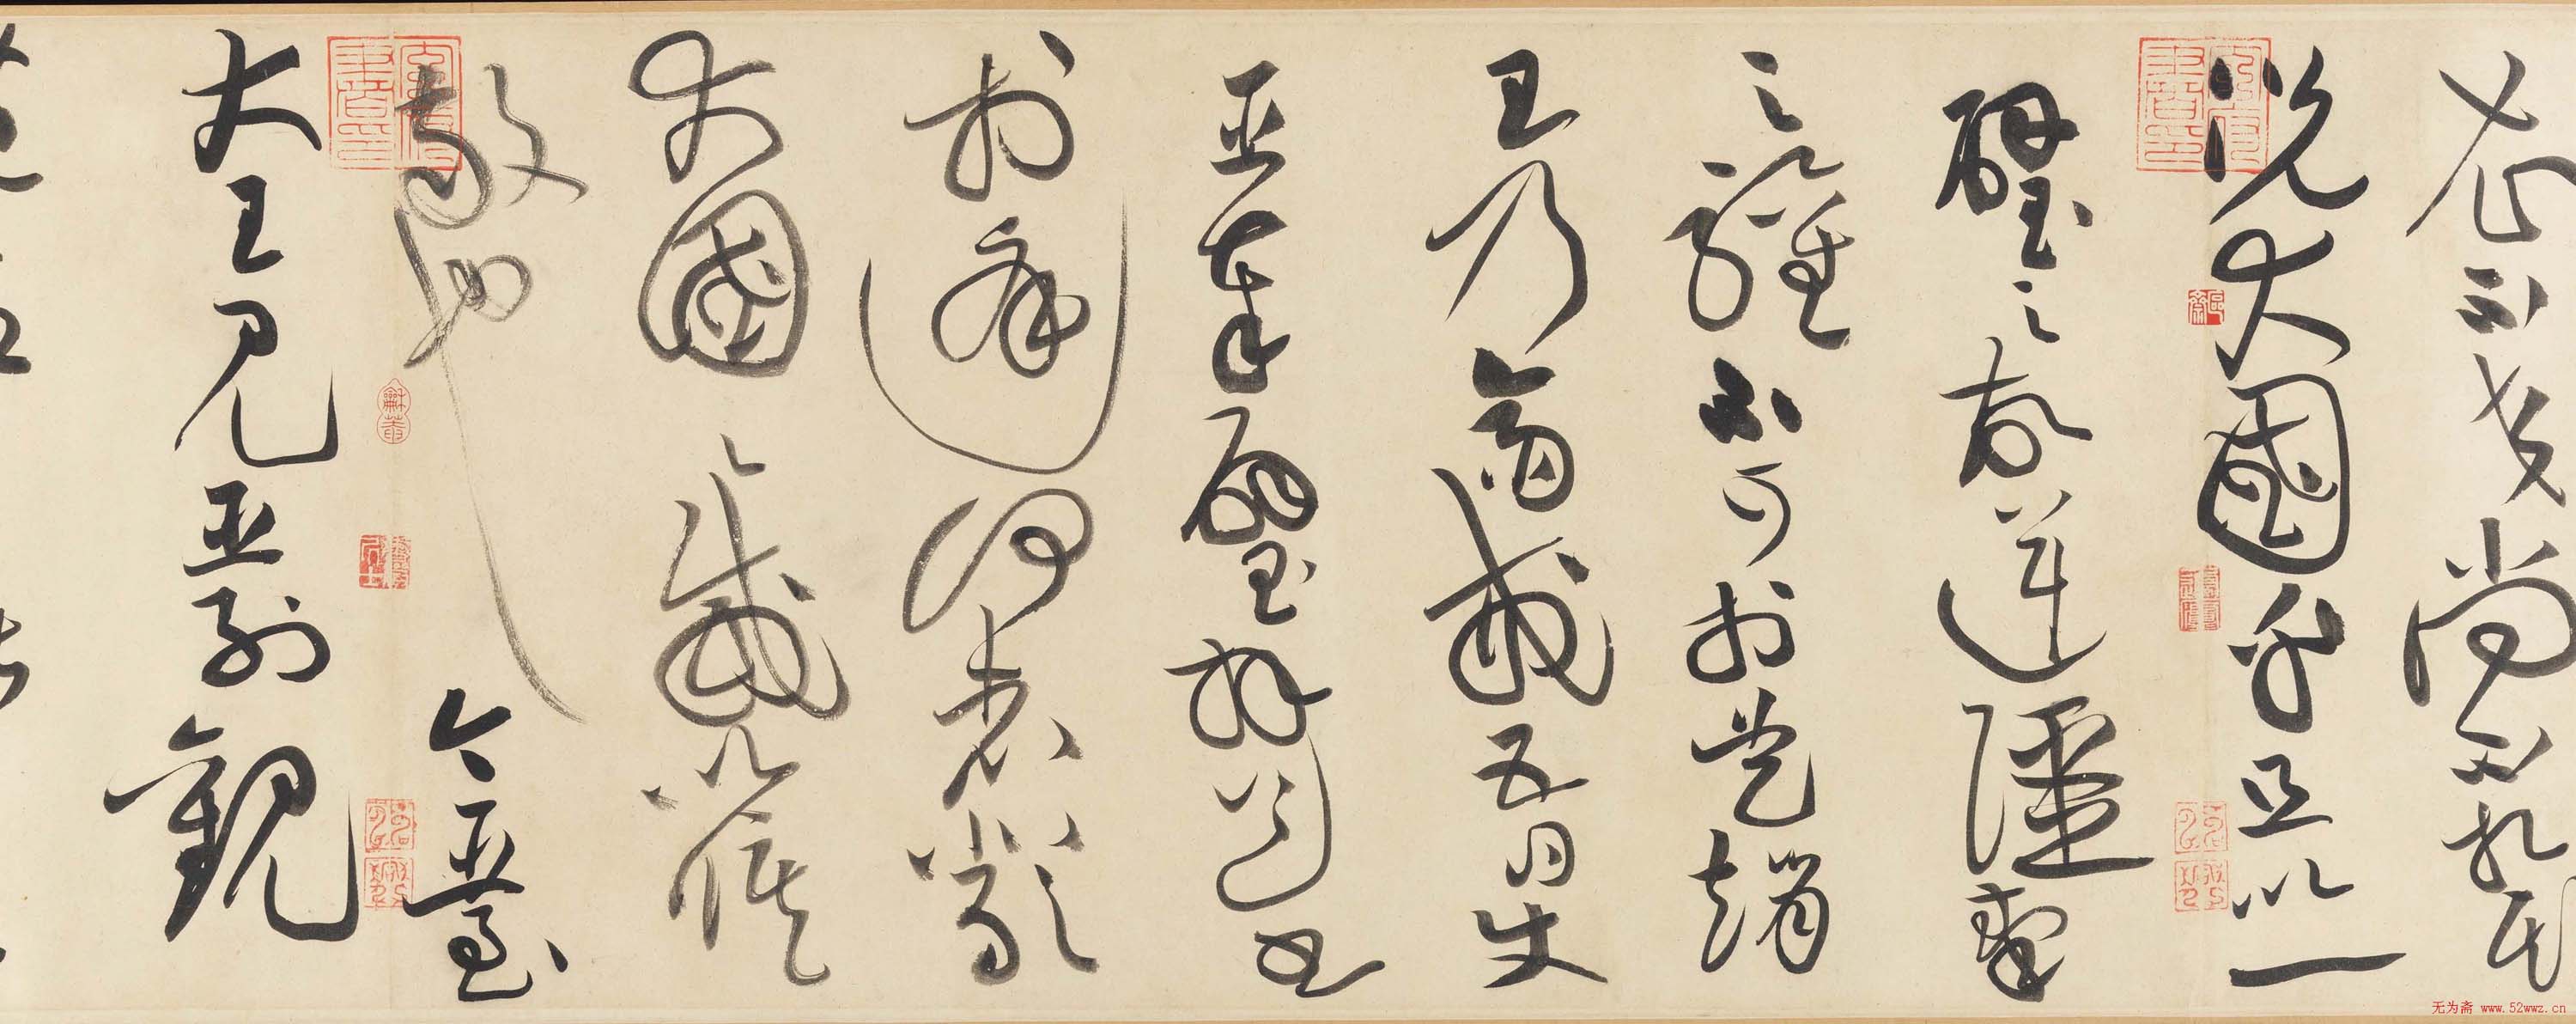 衣之交尚不相欺
況大國乎且以一
璧之故逆彊秦
之驩不可於是趙
王乃齋戒五日使
臣奉璧拜送書
於庭何者嚴
大國之威以修
敬也今臣至
大王見臣列觀
无为斋 www.52wwz.cn